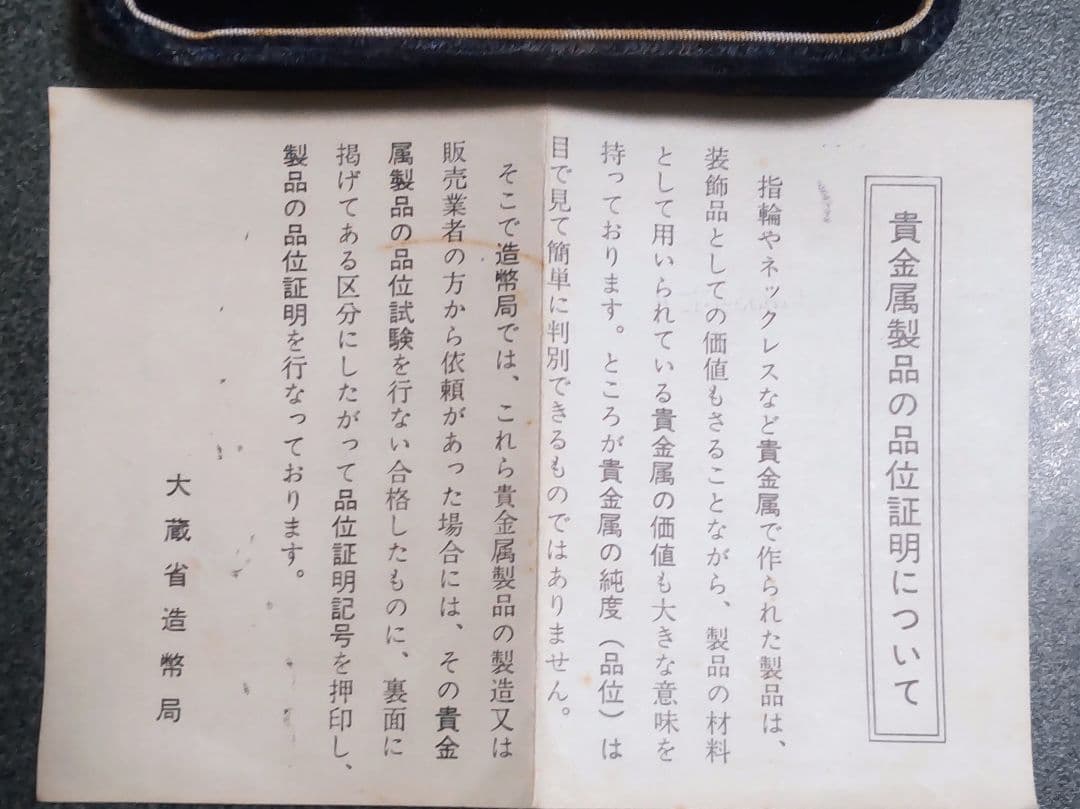 貴金属製品の品位証明について
指輪やネックレスなど貴金属で作られた製品は、
装飾品としての価値もさることながら、製品の材料
として用いられている貴金属の価値も大きな意味を
持っております。ところが貴金属の純度(品位)は
目で見て簡単に判別できるものではありません。
そこで造幣局では、これら貴金属製品の製造又は
販売業者の方から依頼があった場合には、その貴金
属製品の品位試験を行ない合格したものに、裏面に
掲げてある区分にしたがって品位証明記号を押印し、
製品の品位証明を行なっております。
大蔵省造幣局